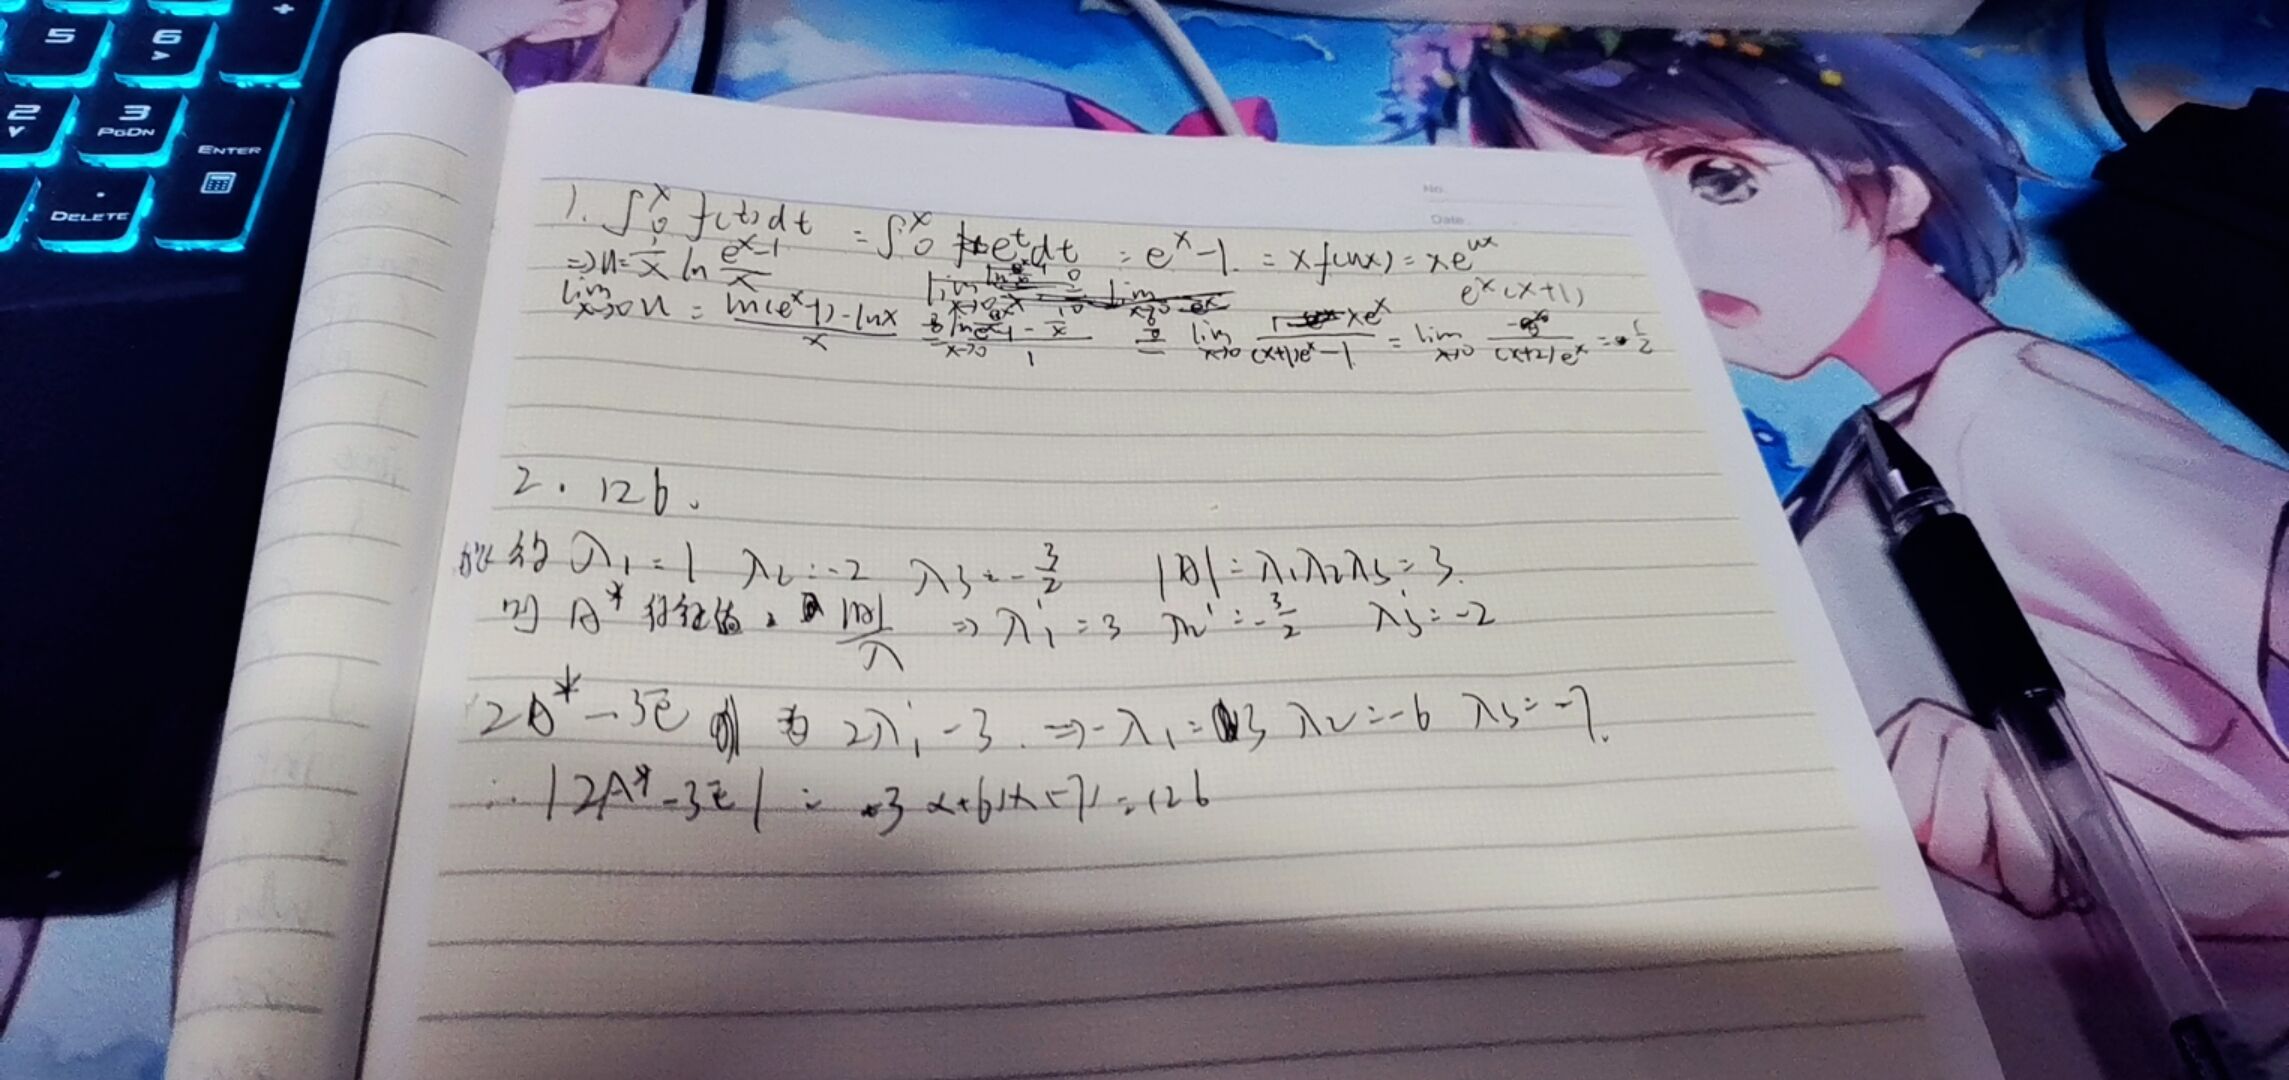 5
6
>
+
2
∨
3
PGDN
ENTER
.
DELETE
No.
Date
1. ∫₀ˣ f(t)dt = ∫₀ˣ eᵗdt = eˣ-1 = x f(ux) = xe^{ux}
=> u = 1/x ln (eˣ-1)/x
eˣ(x+1)
lim x→0 u = (ln(eˣ-1) - lnx)/x
lim x→0 xeˣ/((x+1)eˣ-1) = lim x→0 /((x+2)eˣ) = 1/2
2. 126.
λ₁ = 1 λ₂ = -2 λ₃ = -3/2 |A| = λ₁λ₂λ₃ = 3.
则 A* 特征值 |A|/λ => λ₁' = 3 λ₂' = -3/2 λ₃' = -2
2A* - 3E 则 为 2λᵢ' - 3. => λ₁ = 3 λ₂ = -6 λ₃ = -7.
∴ |2A* - 3E| = 3×(-6)×(-7) = 126